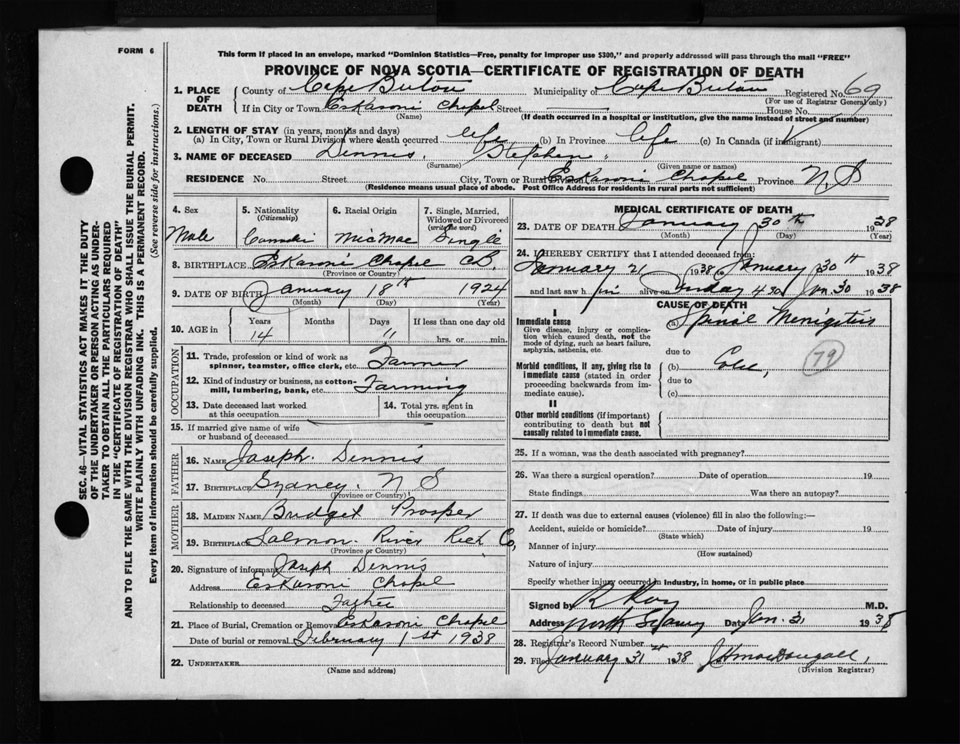 FORM 6
This form if placed in an envelope, marked "Dominion Statistics—Free, penalty for improper use $300," and properly addressed will pass through the mail "FREE"
PROVINCE OF NOVA SCOTIA—CERTIFICATE OF REGISTRATION OF DEATH
1. PLACE OF DEATH County of Cape Breton Municipality of Cape Breton Registered No. 69
(For use of Registrar General only)
If in City or Town Eskasoni Chapel Street House No.
(Name) (If death occurred in a hospital or institution, give the name instead of street and number)
2. LENGTH OF STAY (in years, months and days)
(a) In City, Town or Rural Division where death occurred life (b) In Province life (c) In Canada (if immigrant)
3. NAME OF DECEASED Dennis, Stephen,
(Surname) (Given name or names)
RESIDENCE No. Street City, Town or Rural Division Eskasoni Chapel Province N S
(Residence means usual place of abode. Post Office Address for residents in rural parts not sufficient)
4. Sex Male
5. Nationality (Citizenship)
6. Racial Origin MicMac
7. Single, Married, Widowed or Divorced (write the word) Single
8. BIRTHPLACE Eskasoni Chapel CB,
(Province or Country)
9. DATE OF BIRTH January 18th 1924
(Month) (Day) (Year)
10. AGE in Years Months Days If less than one day old
14 11 hrs. or min.
OCCUPATION
11. Trade, profession or kind of work as spinner, teamster, office clerk, etc. Farmer
12. Kind of industry or business, as cotton-mill, lumbering, bank, etc. Farming
13. Date deceased last worked at this occupation
14. Total yrs. spent in this occupation
15. If married give name of wife or husband of deceased
FATHER
16. NAME Joseph Dennis
17. BIRTHPLACE Sydney N S
(Province or Country)
MOTHER
18. MAIDEN NAME Bridget Prosper
19. BIRTHPLACE Salmon River Rich Co,
(Province or Country)
20. Signature of informant Joseph Dennis
Address Eskasoni Chapel
Relationship to deceased Father
21. Place of Burial, Cremation or Removal Eskasoni Chapel
Date of burial or removal February 1st 1938
22. UNDERTAKER
(Name and address)
MEDICAL CERTIFICATE OF DEATH
23. DATE OF DEATH January 30th 1938
(Month) (Day) (Year)
24. I HEREBY CERTIFY that I attended deceased from:
January 21 1938 to January 30th 1938
and last saw him alive on Sunday 4 30 Jan 30 1938
CAUSE OF DEATH
I
Immediate cause
Give disease, injury or complication which caused death, not the mode of dying, such as heart failure, asphyxia, asthenia, etc.
(a) Spinal Menigitis
due to
Morbid conditions, if any, giving rise to immediate cause (stated in order proceeding backwards from immediate cause).
(b) Cold,
79
due to
(c)
II
Other morbid conditions (if important) contributing to death but not causally related to immediate cause.
25. If a woman, was the death associated with pregnancy?
26. Was there a surgical operation? Date of operation 19
State findings Was there an autopsy?
27. If death was due to external causes (violence) fill in also the following:—
Accident, suicide or homicide? Date of injury 19
(State which)
Manner of injury
(How sustained)
Nature of injury
Specify whether injury occurred in industry, in home, or in public place
Signed by M.D.
Address North Sydney Date Jan. 31 1938
28. Registrar's Record Number
29. Filed January 31st 1938 J H MacDougall,
(Division Registrar)
SEC. 46—VITAL STATISTICS ACT MAKES IT THE DUTY
OF THE UNDERTAKER OR PERSON ACTING AS UNDER-
TAKER TO OBTAIN ALL THE PARTICULARS REQUIRED
IN THE "CERTIFICATE OF REGISTRATION OF DEATH"
AND TO FILE THE SAME WITH THE DIVISION REGISTRAR WHO SHALL ISSUE THE BURIAL PERMIT.
WRITE PLAINLY WITH UNFADING INK. THIS IS A PERMANENT RECORD.
Every item of information should be carefully supplied. (See reverse side for instructions.)